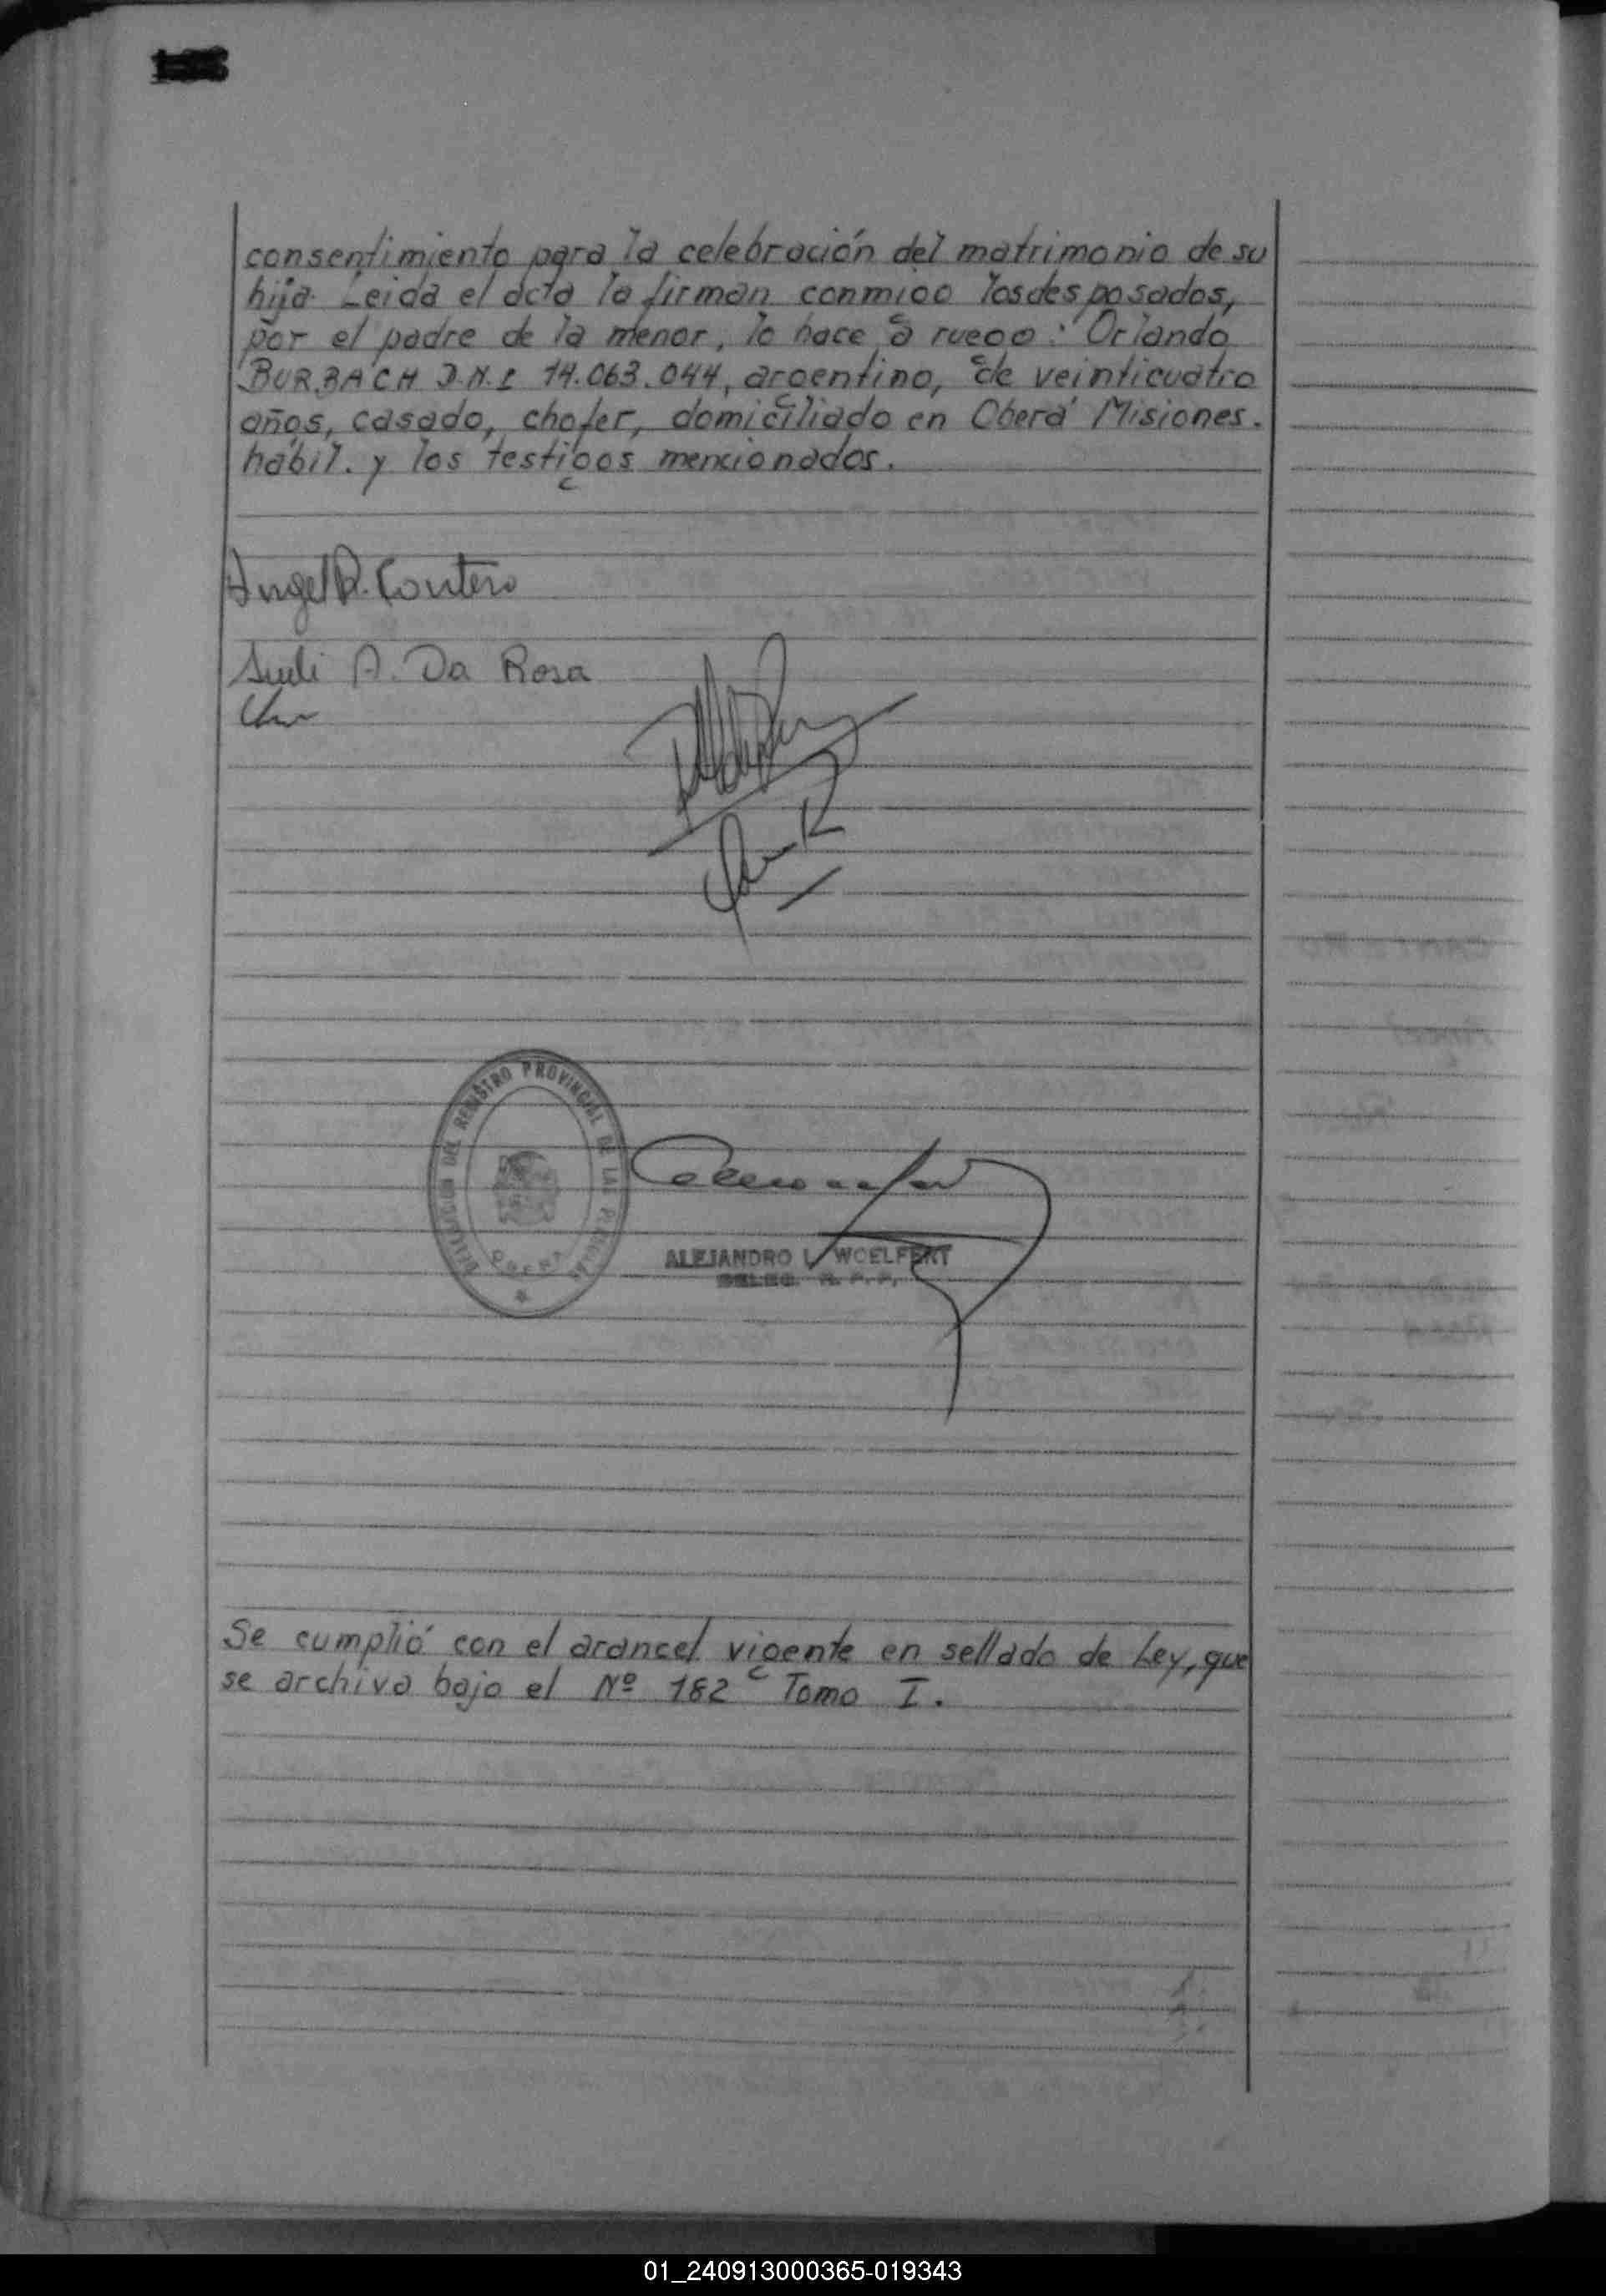 consentimiento para la celebración del matrimonio de su
hija. Leida el acta la firman conmigo los desposados,
por el padre de la menor, lo hace a ruego: Orlando
BURBACH D.N.I 14.063.044, argentino, de veinticuatro
años, casado, chofer, domiciliado en Oberá Misiones.
hábil. y los testigos mencionados.
Angel R. Contero
Sueli A. Da Rosa
DELEGACION DEL REGISTRO PROVINCIAL DE LAS PERSONAS
OBERA
ALEJANDRO L. WOELFERT
DELEG. R. P. P.
Se cumplió con el arancel vigente en sellado de Ley, que
se archiva bajo el Nº 182 Tomo I.
01_240913000365-019343